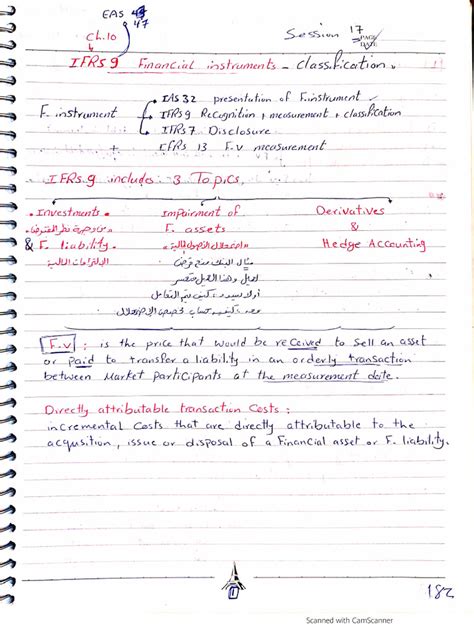 EAS 47
47
Ch.10
Session 17
PAGE
DATE
IFRS 9 Financial instruments - classification.
IAS 32 presentation of F.instrument
F. instrument IFRS 9 Recognition + measurement + classification
IFRS 7 Disclosure
+ IFRS 13 F.v measurement
IFRS.9 includes 3 Topics.
Investments. Impairment of Derivatives
F. assets &
& F. liability. Hedge Accounting
الالتزامات المالية
مثال البنك منح قرض
F.v : is the price that would be received to sell an asset
or paid to transfer a liability in an orderly transaction
between Market participants at the measurement date.
Directly attributable transaction Costs :
incremental Costs that are directly attributable to the
acqusition, issue or disposal of a Financial asset or F. liability.
1
182
Scanned with CamScanner